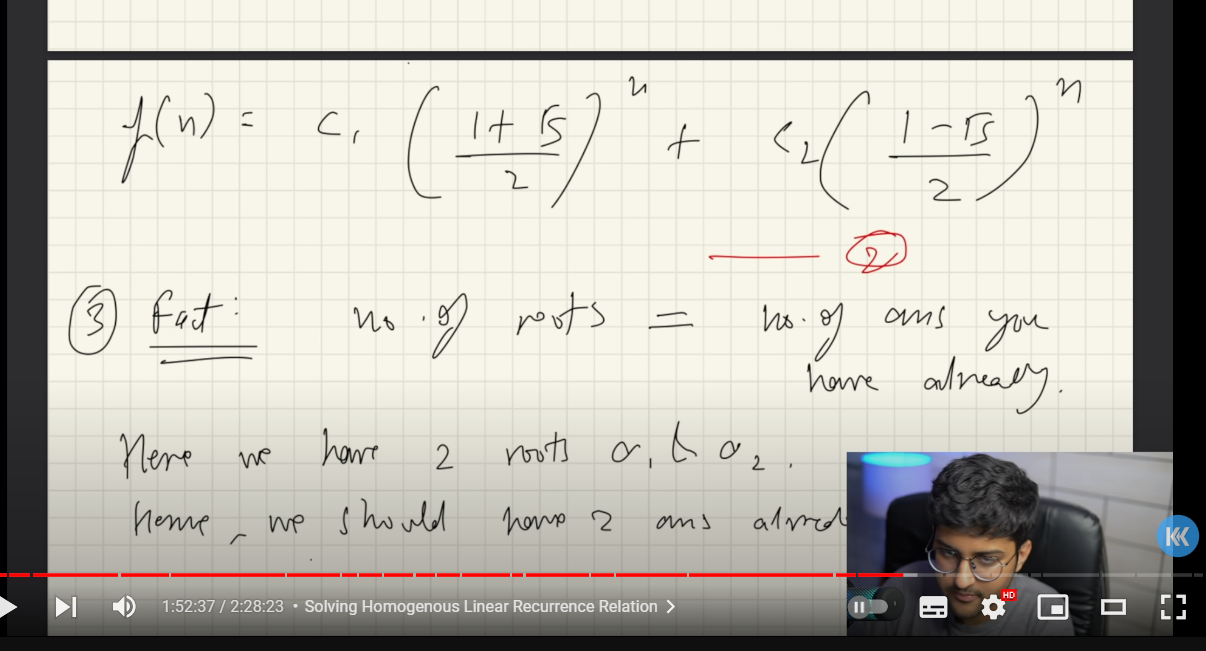 f(n) = c₁ ((1+√5)/2)ⁿ + c₂ ((1-√5)/2)ⁿ
②
③ Fact: no. of roots = no. of ans you
have already.
Here we have 2 roots α₁ & α₂.
Hence, we should have 2 ans alread
1:52:37 / 2:28:23 • Solving Homogenous Linear Recurrence Relation
HD